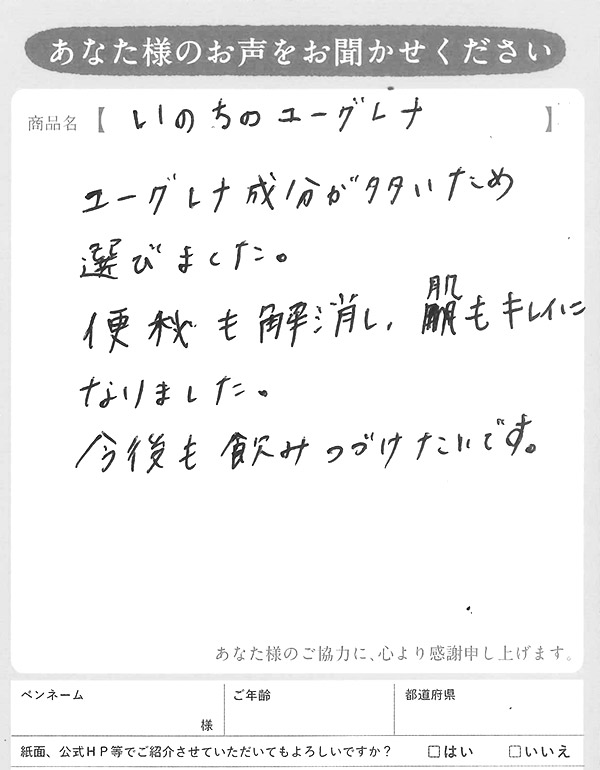 あなた様のお声をお聞かせください
商品名【いのちのユーグレナ】
ユーグレナ成分が多いため
選びました。
便秘も解消し、肌もキレイに
なりました。
今後も飲みつづけたいです。
あなた様のご協力に、心より感謝申し上げます。
ペンネーム 様 ご年齢 都道府県
紙面、公式HP等でご紹介させていただいてもよろしいですか? □はい □いいえ